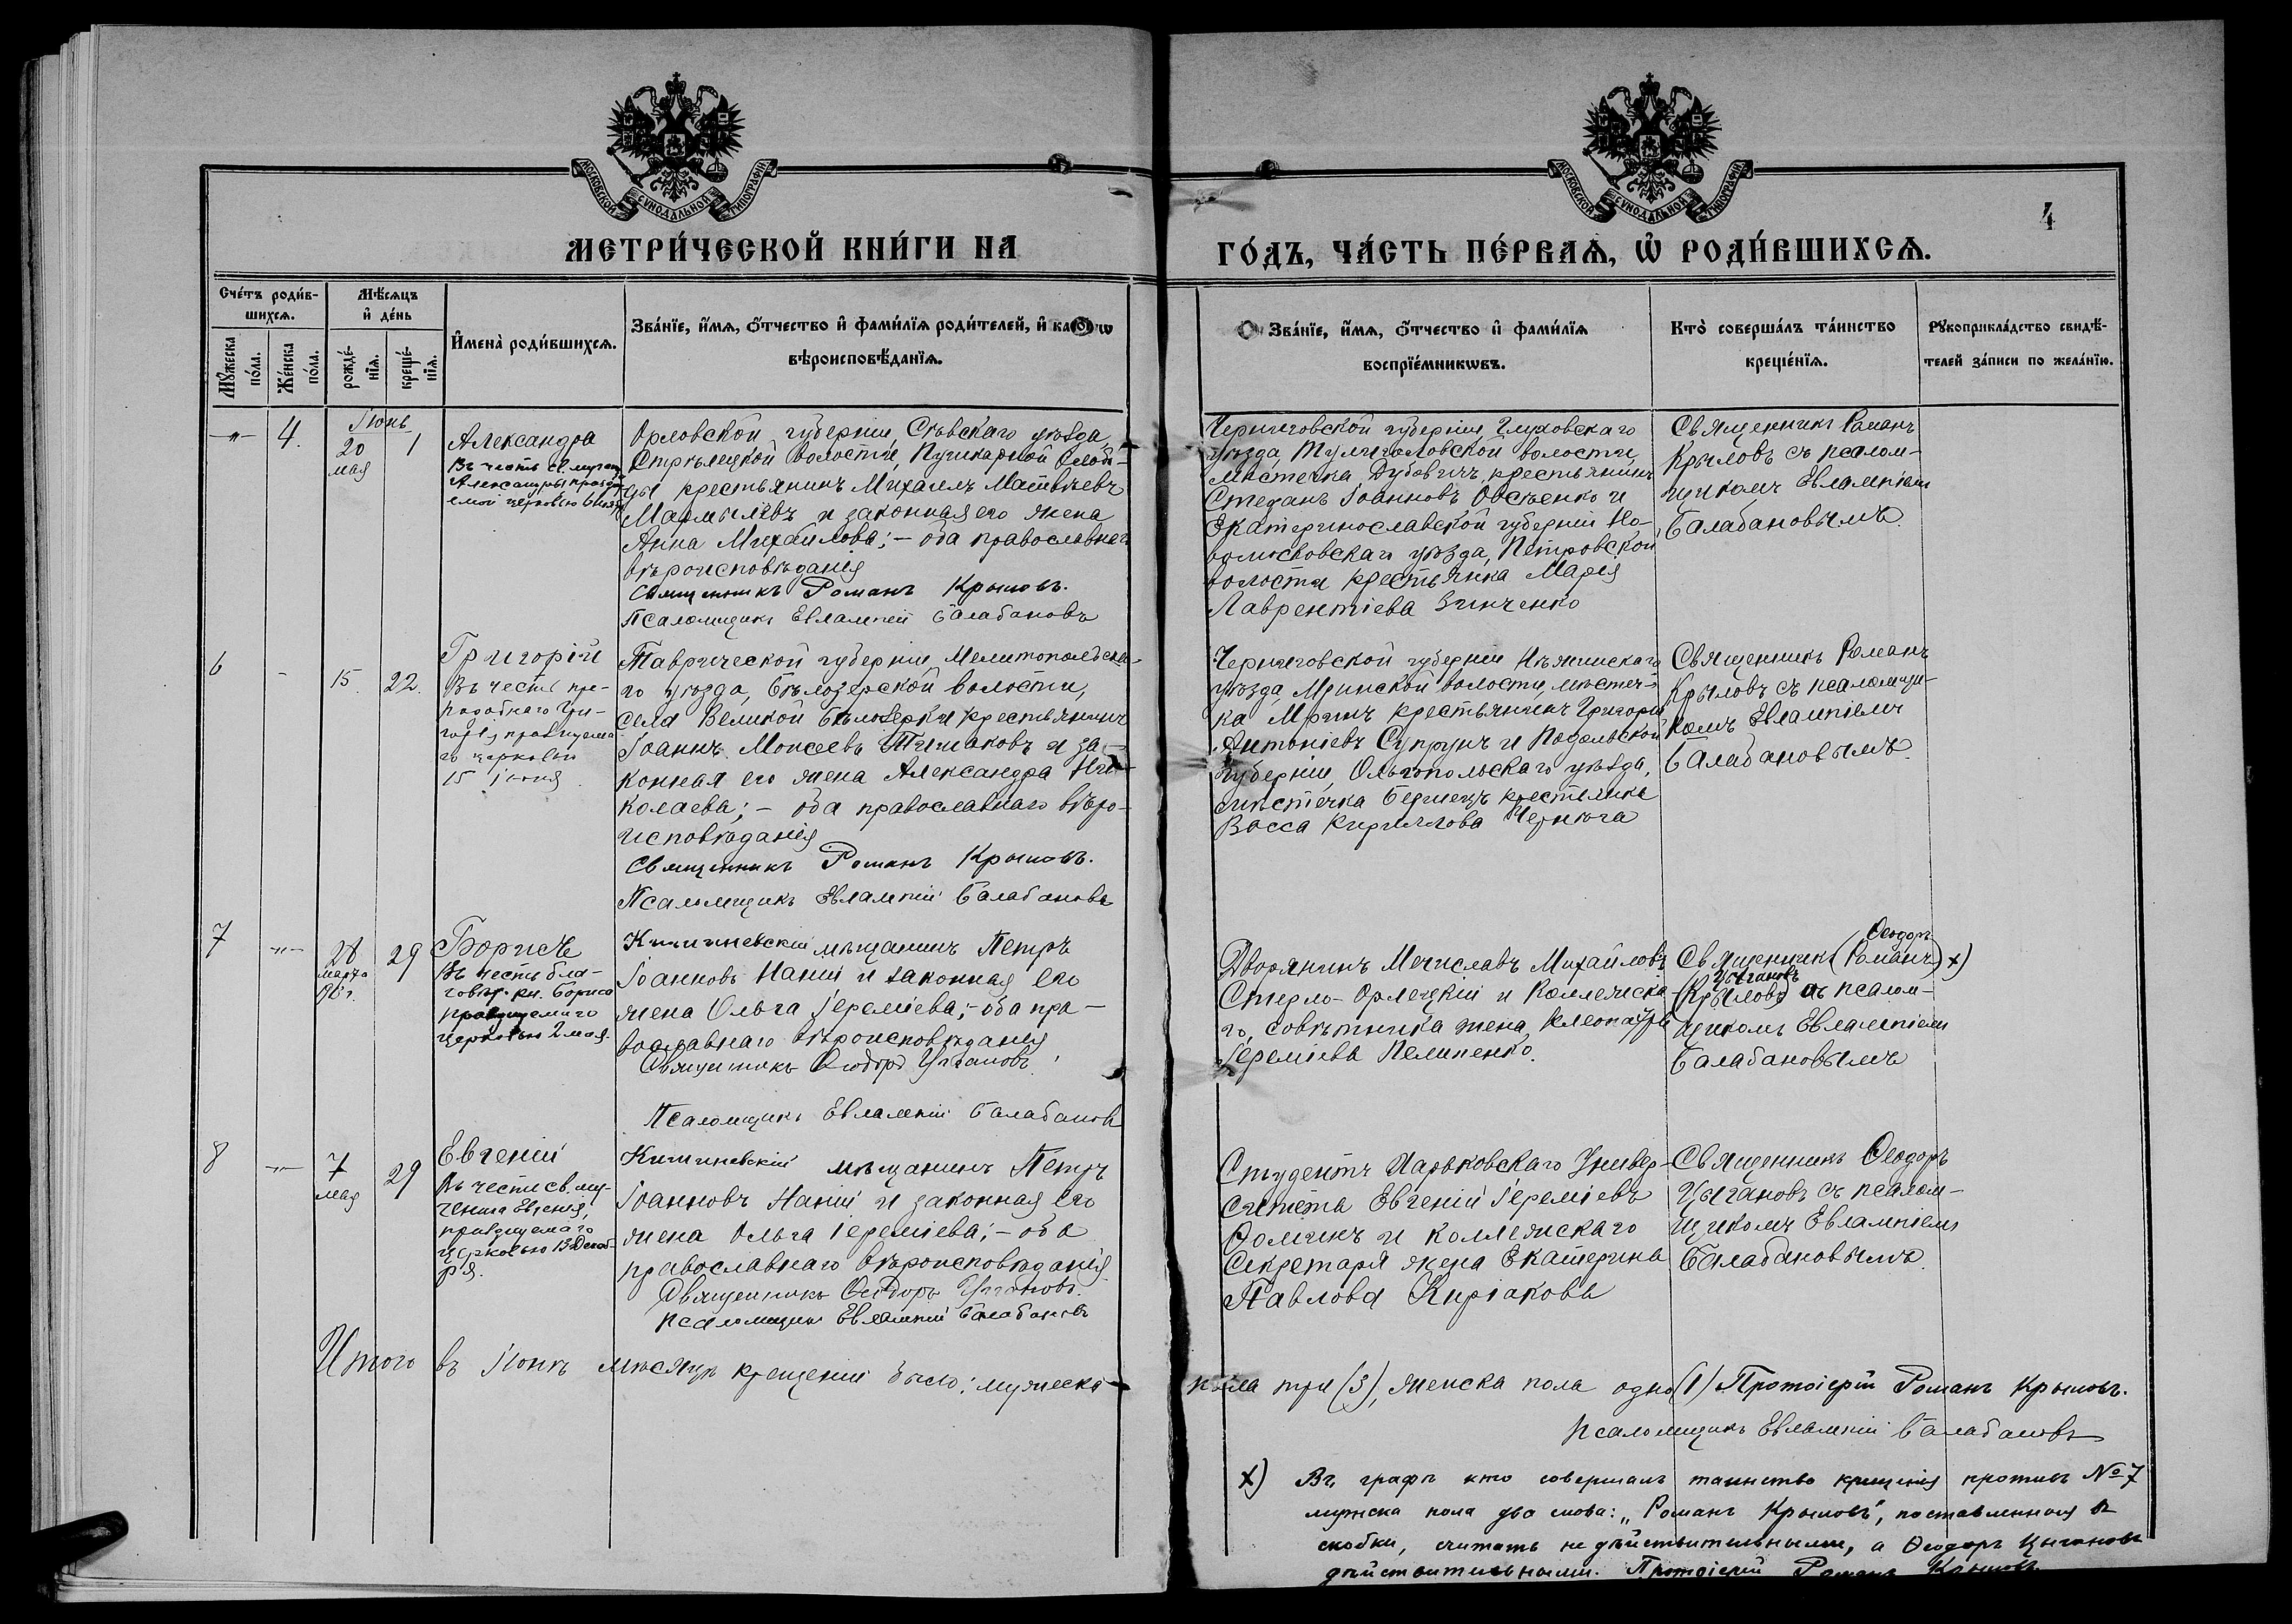 МОСКОВСКОЙ СУНОДАЛЬНОЙ ТИПОГРАФІИ
МОСКОВСКОЙ СУНОДАЛЬНОЙ ТИПОГРАФІИ
4
МЕТРИ́ЧЕСКОЙ КНИ́ГИ НА
ГО́ДЪ, ЧА́СТЬ ПЕ́РВАѦ, Ѡ҆ РОДИ́ВШИХСѦ.
Сче́тъ роди́в-
шихсѧ.
Мꙋ́жеска
по́ла.
Же́нска
по́ла.
Мѣ́сѧцъ
и҆ де́нь
рожде́-
нїѧ.
креще́-
нїѧ.
И҆мена̀ роди́вшихсѧ.
Зва́нїе, и҆́мѧ, ѻ҆́тчество и҆ фами́лїѧ роди́телей, и҆ како́гѡ
вѣроисповѣ́данїѧ.
Зва́нїе, и҆́мѧ, ѻ҆́тчество и҆ фами́лїѧ
воспрїе́мникѡвъ.
Кто̀ соверша́лъ та́инство
креще́нїѧ.
Рꙋкоприкла́дство свидѣ́-
телей за́писи по жела́нїю.
-"-
4.
Іюнь
20
мая
1
Александра
Въ честь св. мучен.
Александры праздн
емой церковью
Орловской губерніи, Сѣвскаго уѣзда,
Стрѣлецкой волости, Пушкарной Слобо-
ды крестьянинъ Михаилъ Матвѣевъ
и законная его жена
Анна Михаилова; – оба православнаго
вѣроисповѣданія
Священникъ Романъ Крыловъ.
Псаломщикъ Евлампій Балабановъ
Черниговской губерніи Глуховскаго
уѣзда, Тулиголовской волости,
мѣстечка Дубовичъ, крестьянинъ
Стефанъ Іоанновъ Овсѣенко и
Екатеринославской губерніи Но-
вомосковскаго уѣзда, Петровской
волости крестьянка Марія
Лаврентіева Зинченко
Священникъ Романъ
Крыловъ съ псалом-
щикомъ Евлампіемъ
Балабановымъ
6
-
15.
22.
Григорій
Въ честь пре-
подобнаго Гри-
горія празднуема
го церковью
15 іюня
Таврической губерніи, Мелитопольска-
го уѣзда, Бѣлозерской волости,
села Великой Бѣлозерки крестьянинъ
Іоаннъ Моисеевъ Тишаковъ и за-
конная его жена Александра Ни-
колаева; – оба православнаго вѣро-
исповѣданія
Священникъ Романъ Крыловъ.
Псаломщикъ Евлампій Балабановъ
Черниговской губерніи Нѣжинскаго
уѣзда, Мринской волости, мѣстеч-
ка Мринъ крестьянинъ Григорій
Антоніевъ Супрунъ и Подольской
губерніи, Ольгопольскаго уѣзда,
мѣстечка крестьянка
Васса Кириллова Чернюга
Священникъ Романъ
Крыловъ съ псаломщи-
комъ Евлампіемъ
Балабановымъ
7
-"-
28
марта
96 г.
29
Борисъ
Въ честь бла-
говѣр. кн. Бориса
празднуемаго
церковью 2 мая.
Кишиневскій мѣщанинъ Петръ
Іоанновъ Наній и законная его
жена Ольга Іереміева; – оба пра-
вославнаго вѣроисповѣданія
Священникъ Ѳеодоръ Цыгановъ
Псаломщикъ Евлампій Балабановъ
Дворянинъ Мечиславъ Михайловъ
Стерло-Орлецкій и Коллежска-
го совѣтника жена Клеопатра
Іереміева Пелипенко.
Ѳеодоръ
Священникъ (Романъ) х)
Цыгановъ
(Крыловъ) съ псалом-
щикомъ Евлампіемъ
Балабановымъ
8
-"-
7
мая
29
Евгеній
Въ честь св. му-
ченика Евгенія,
празднуемаго
церковью 13 Декаб-
ря.
Кишиневскій мѣщанинъ Петръ
Іоанновъ Наній и законная его
жена Ольга Іереміева; – оба
православнаго вѣроисповѣданія.
Священникъ Ѳеодоръ Цыгановъ.
Псаломщикъ Евлампій Балабановъ
Студентъ Харьковскаго Универ-
ситета Евгеній Іереміевъ
Ѳоминъ и коллежскаго
Секретаря жена Екатерина
Павлова Киріакова
Священникъ Ѳеодоръ
Цыгановъ съ псалом-
щикомъ Евлампіемъ
Балабановымъ
Итого въ Іюнѣ мѣсяцѣ крещеній было: мужеска
пола три (3), женска пола одно (1) Протоіерей Романъ Крыловъ.
Псаломщикъ Евлампій Балабановъ
х) Въ графѣ кто совершалъ таинство крещенія противъ № 7
мужска пола два слова: „Романъ Крыловъ", поставленныя въ
скобки, считать не дѣйствительными, а Ѳеодоръ Цыгановъ
дѣйствительными. Протоіерей Романъ Крыловъ